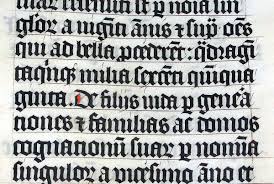 p noīa sin
gꝉoꝝ a uigīti ānis ⁊ sup̄ oēs
qui ad bella ꝓcederent: q̄dragī
ta quīqꝫ milia sexcēti quīqua
ginta. De filijs iuda ꝑ gen̄a
tiones ⁊ familias ac domos
cognationū suaꝝ ꝑ nomīa
singuloꝝ a uicesimo āno et